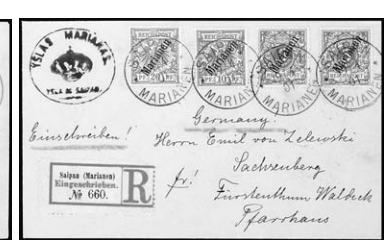 YSLAS MARIANAS
YSLA DE SAIPAN.
REICHSPOST
REICHSPOST
Marianen
Marianen
Marianen
Marianen
SAIPAN
MARIANEN
MARIANEN
MARIANEN
MARIANEN
Germany.
Einschreiben!
Herrn Emil von Zelewski
Sachsenberg
fr!
Fürstenthum Waldeck
Pfarrhaus
Saipan (Marianen)
Eingeschrieben.
№ 660.
R